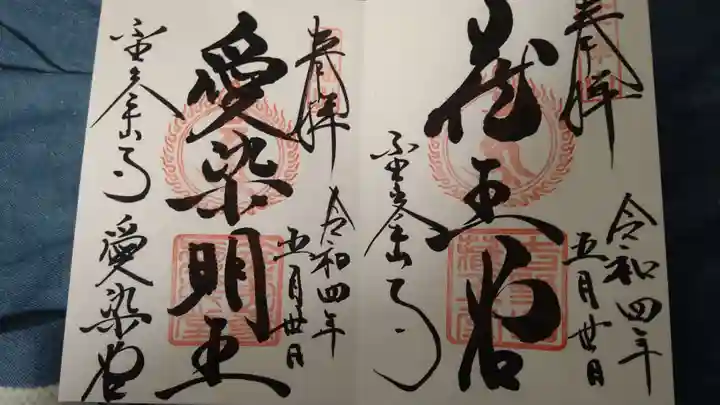 奉拝
令和四年
五月廿日
蔵王堂
金峯山寺
奉拝
令和四年
五月廿日
愛染明王
金峯山寺 愛染堂